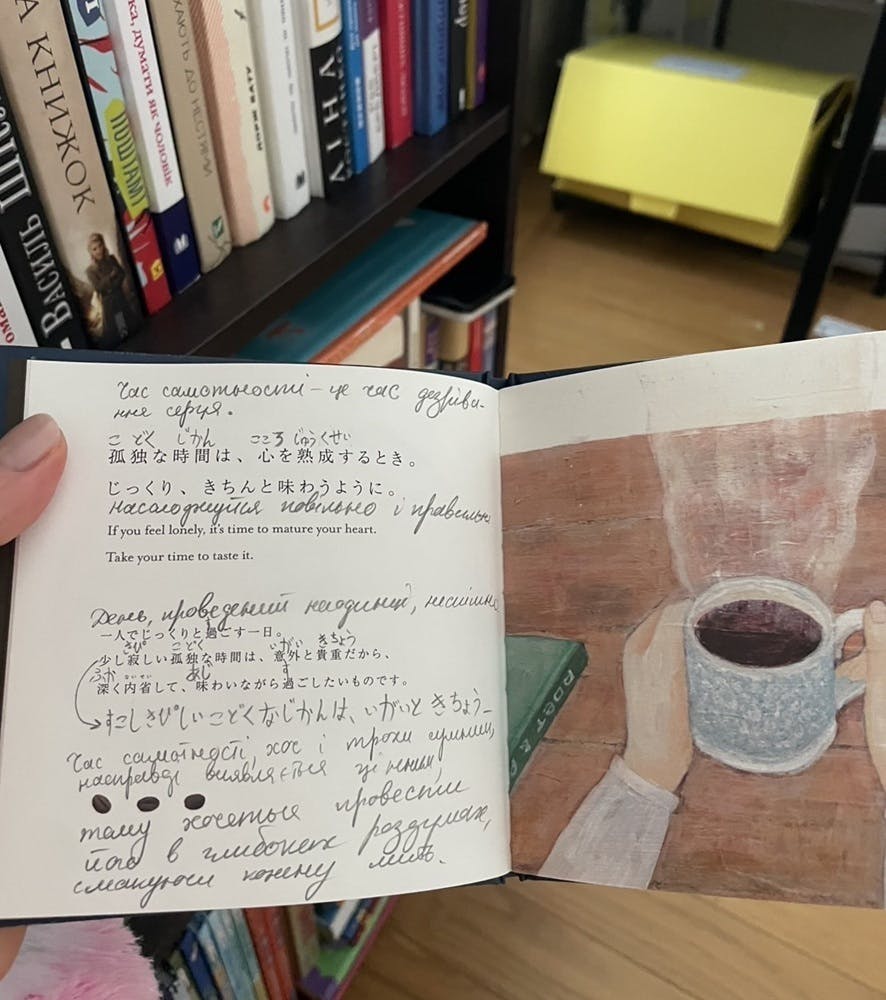 А КНИЖОК
ВАСИЛЬ
ПОШТАМТ
ка, думати як чоловік
Час самотності – це час дозріва-
ння серця.
こ どく じかん こころ じゅくせい
孤独な時間は、心を熟成するとき。
じっくり、きちんと味わうように。
насолоджуйся повільно і правильно
If you feel lonely, it's time to mature your heart.
Take your time to taste it.
День, проведений наодинці,
一人でじっくりと過ごす一日。
さび こどく いがい きちょう
少し寂しい孤独な時間は、意外と貴重だから、
ふか ないせい あじ す
深く内省して、味わいながら過ごしたいものです。
すこしさびしいこどくなじかんは、いがいと きちょう
Час самотності, хоч і трохи сумний,
насправді виявляється цінним,
тому хочеться провести
його в глибоких роздумах,
смакуючи кожну мить.
POET & P